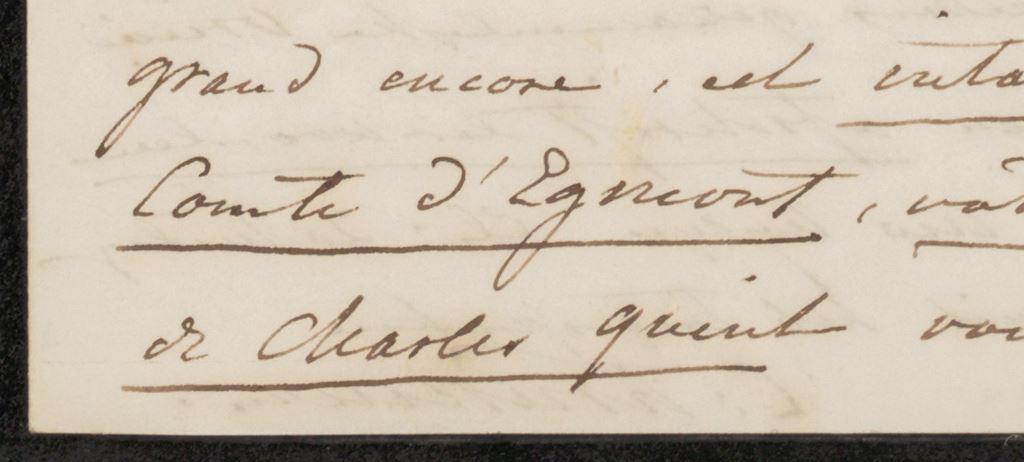 grand encore, est
Comte d'Egmont,
de Charles quint